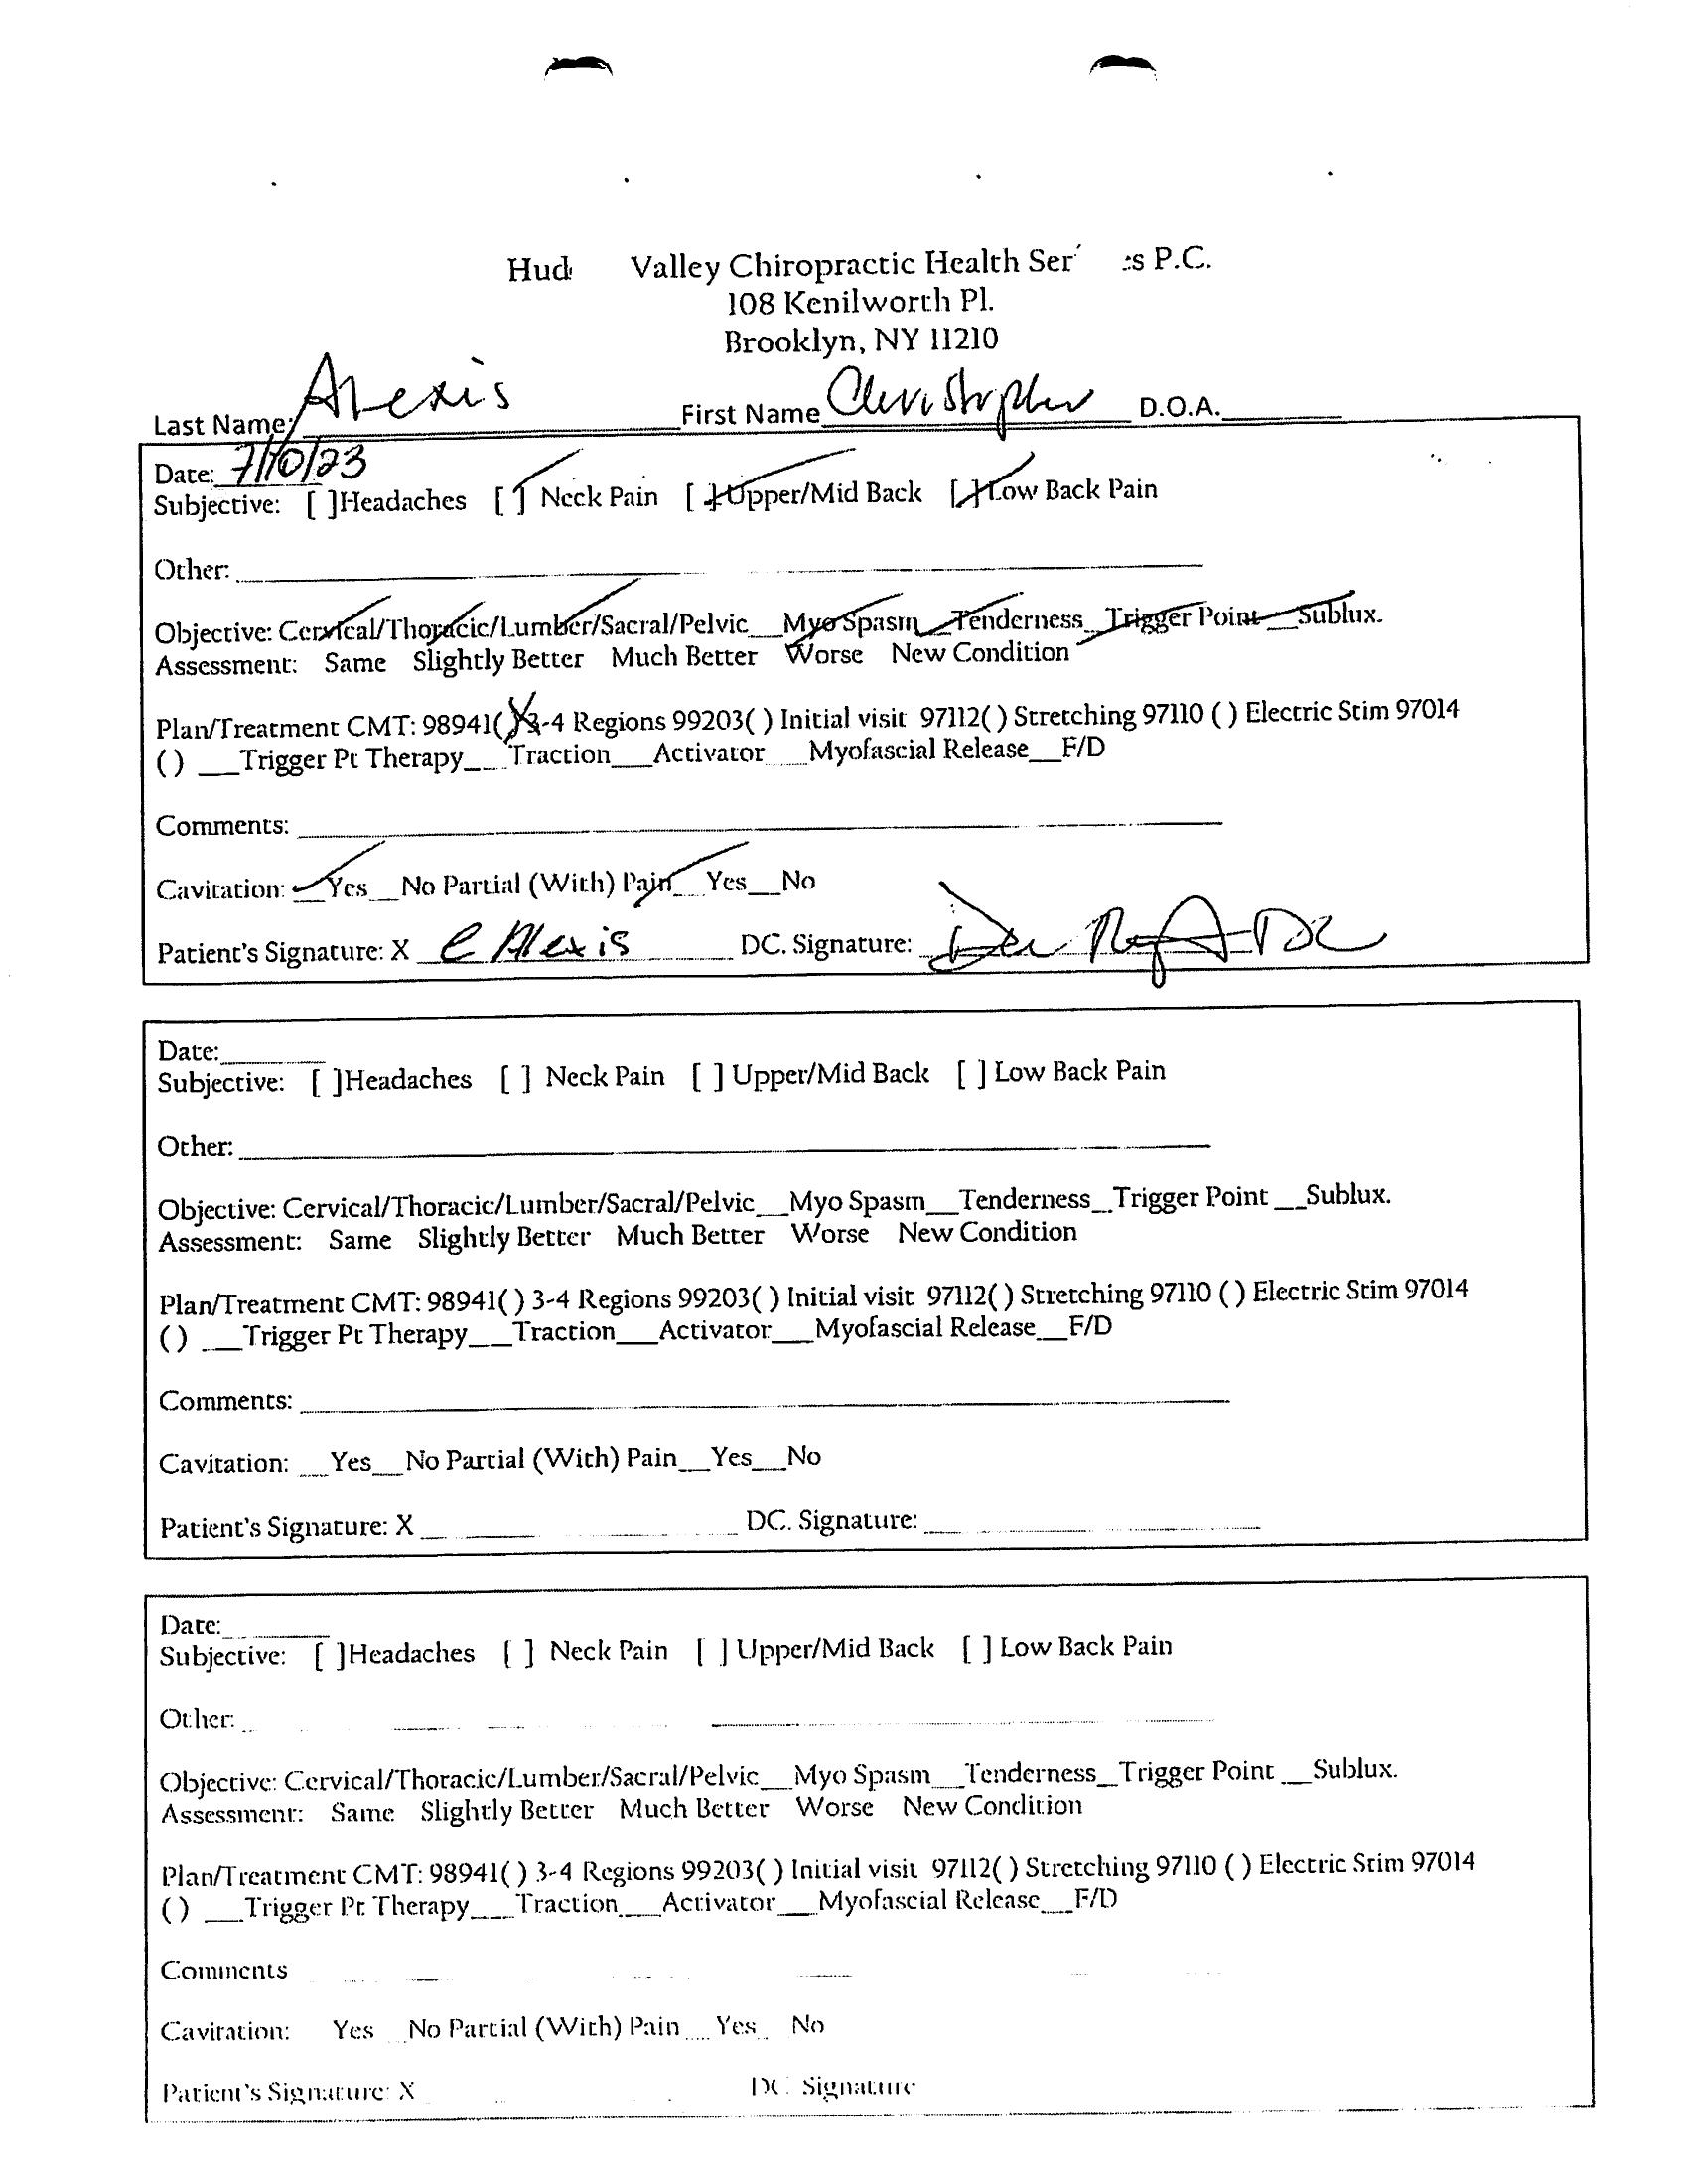 Hud Valley Chiropractic Health Ser :s P.C.
108 Kenilworth Pl.
Brooklyn, NY 11210
Last Name: Alexis First Name Christopher D.O.A.
Date: 7/10/23
Subjective: [ ]Headaches [ ] Neck Pain [ ] Upper/Mid Back [ ] Low Back Pain
Other:
Objective: Cervical/Thoracic/Lumber/Sacral/Pelvic__Myo Spasm__Tenderness__Trigger Point __Sublux.
Assessment: Same Slightly Better Much Better Worse New Condition
Plan/Treatment CMT: 98941( ) 3-4 Regions 99203( ) Initial visit 97112( ) Stretching 97110 ( ) Electric Stim 97014
( ) __Trigger Pt Therapy___Traction___Activator___Myofascial Release__F/D
Comments:
Cavitation: __Yes__No Partial (With) Pain__Yes__No
Patient's Signature: X C Alexis DC. Signature: DC
Date:
Subjective: [ ]Headaches [ ] Neck Pain [ ] Upper/Mid Back [ ] Low Back Pain
Other:
Objective: Cervical/Thoracic/Lumber/Sacral/Pelvic__Myo Spasm__Tenderness__Trigger Point __Sublux.
Assessment: Same Slightly Better Much Better Worse New Condition
Plan/Treatment CMT: 98941( ) 3-4 Regions 99203( ) Initial visit 97112( ) Stretching 97110 ( ) Electric Stim 97014
( ) __Trigger Pt Therapy___Traction___Activator___Myofascial Release__F/D
Comments:
Cavitation: __Yes__No Partial (With) Pain__Yes__No
Patient's Signature: X DC. Signature:
Date:
Subjective: [ ]Headaches [ ] Neck Pain [ ] Upper/Mid Back [ ] Low Back Pain
Other:
Objective: Cervical/Thoracic/Lumber/Sacral/Pelvic__Myo Spasm__Tenderness__Trigger Point __Sublux.
Assessment: Same Slightly Better Much Better Worse New Condition
Plan/Treatment CMT: 98941( ) 3-4 Regions 99203( ) Initial visit 97112( ) Stretching 97110 ( ) Electric Stim 97014
( ) __Trigger Pt Therapy___Traction___Activator___Myofascial Release__F/D
Comments
Cavitation: Yes __No Partial (With) Pain__Yes_ No
Patient's Signature: X DC Signature